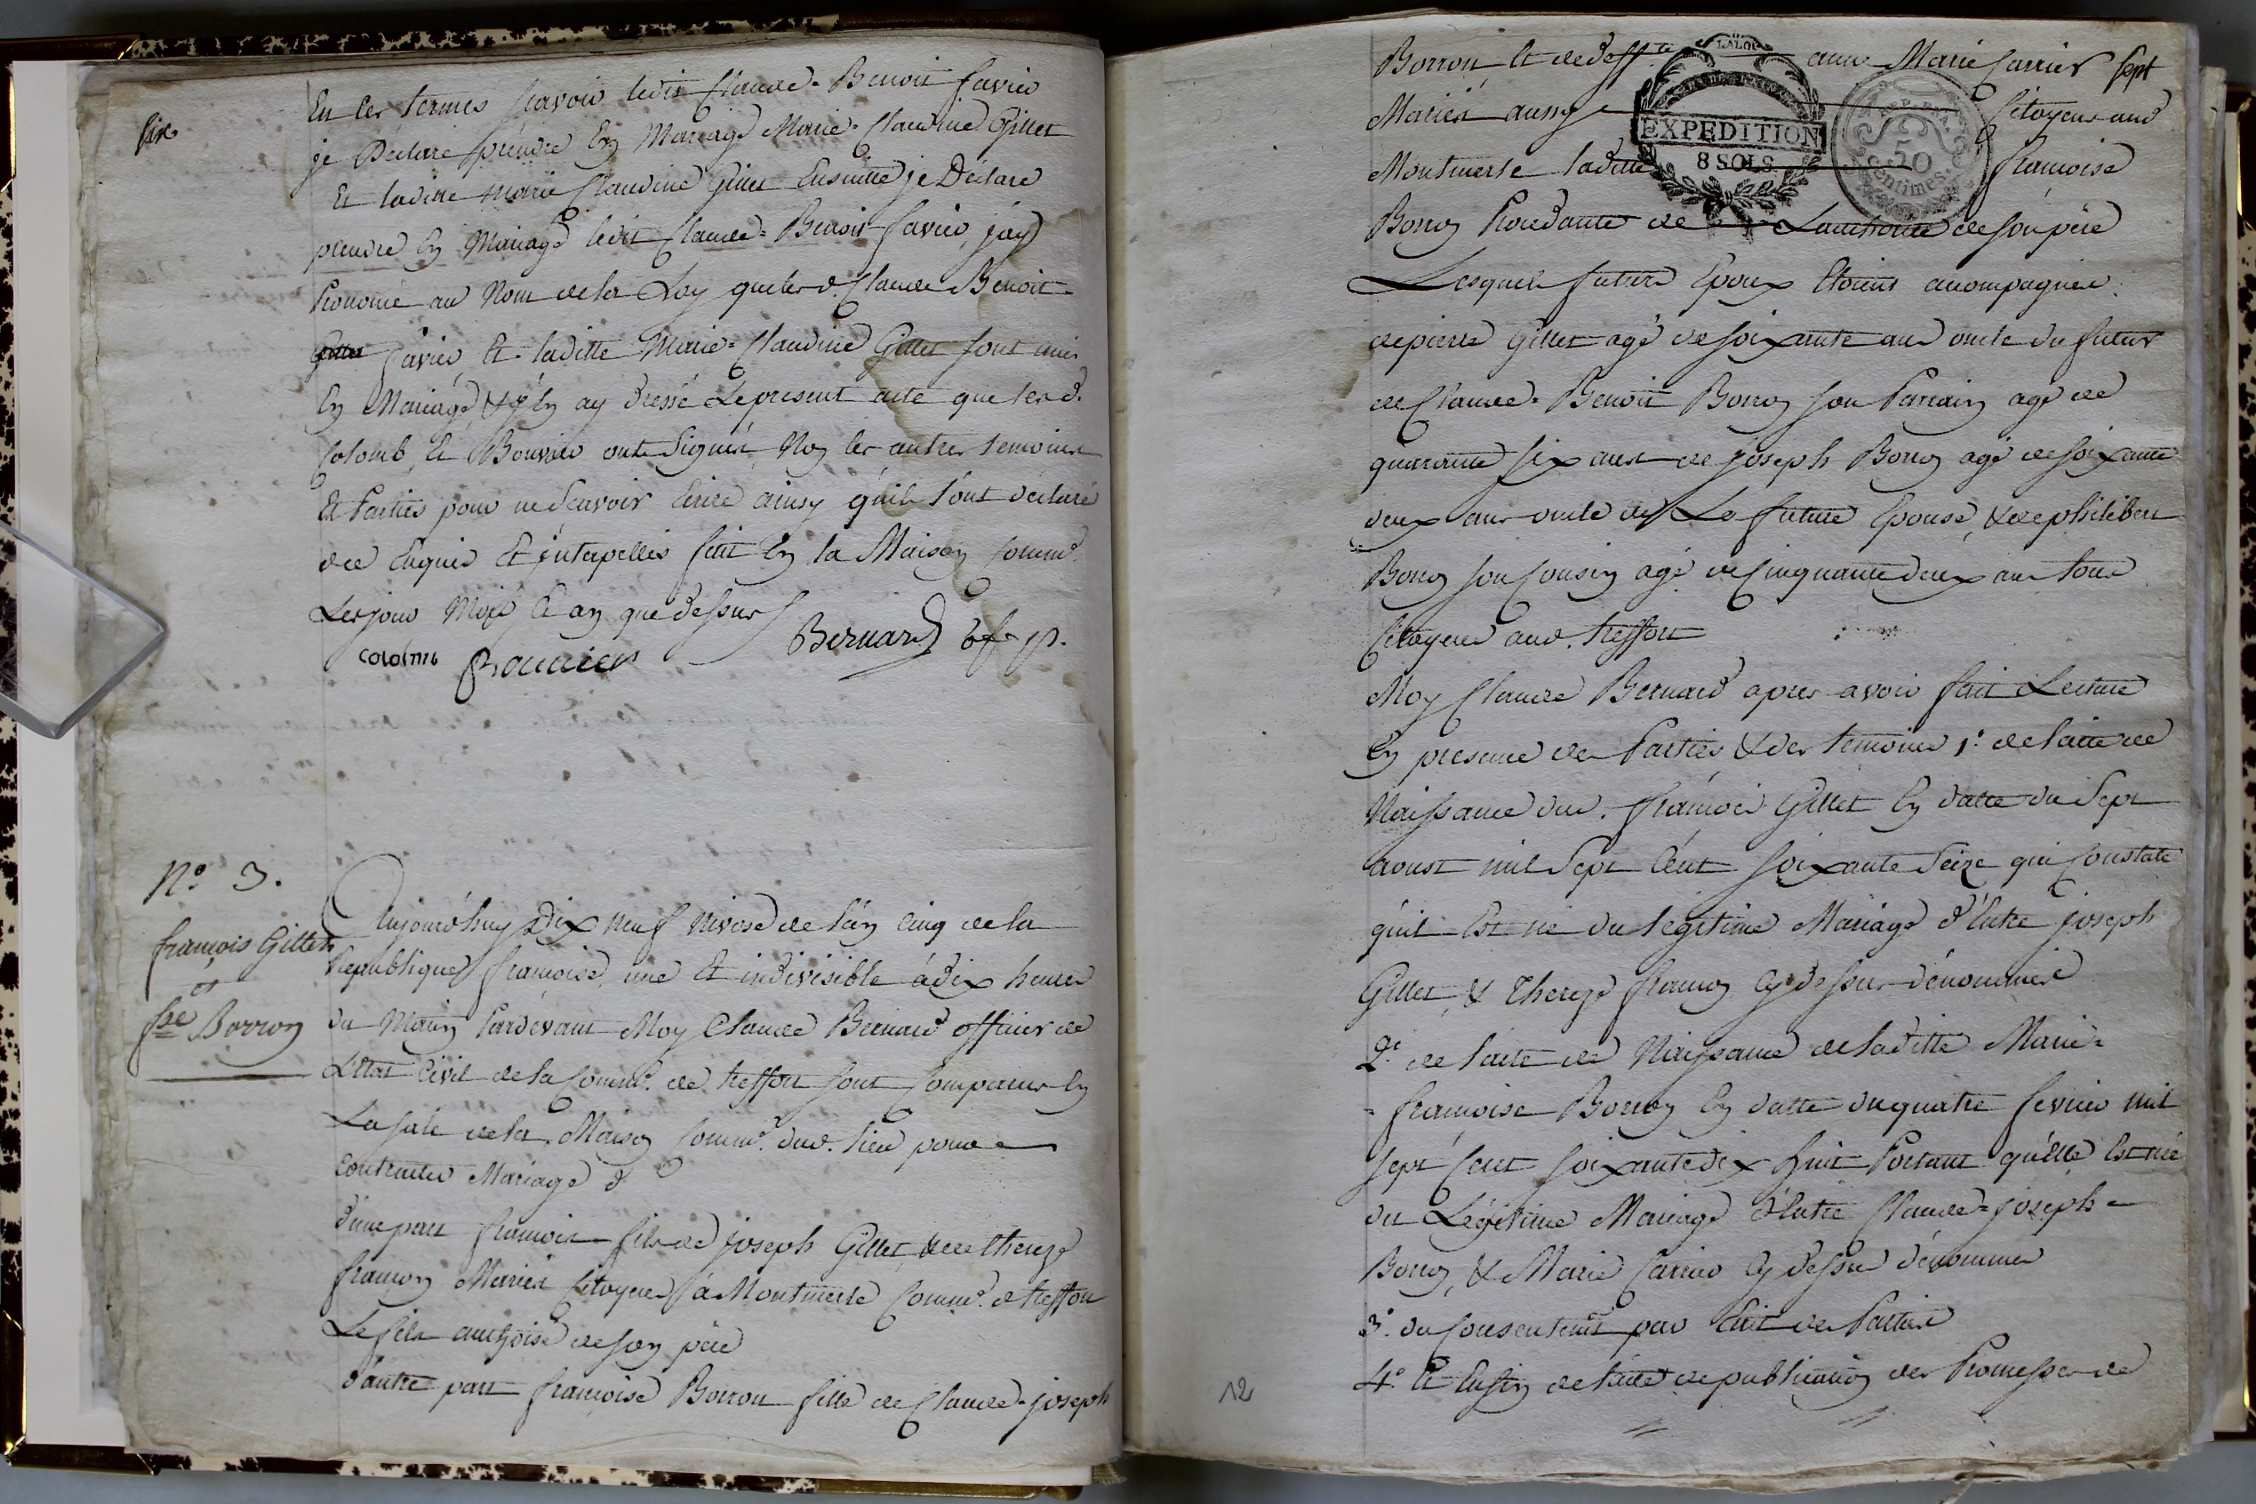 Six
En ces termes scavoir ledit Claude-Benoit favier
je Déclare prendre En Mariage Marie-Claudine Gillet
Et laditte Marie Claudine Gillet Ensuitte je Déclare
prendre En Mariage ledit Claude-Benoit favier, jay
Prononcé au Nom de la Loy que led. Claude Benoit
Gillet favier, Et laditte Marie-Claudine Gillet sont unis
En Mariage & j'En ay dressé Le present acte que les d.
Colomb Et Bouvier ont Signés, Non les autres temoins
Et Parties pour ne Scavoir Ecrire ainsy qu'ils l'ont declaré
de ce Enquis Et jnterpellés fait En la Maison Comm.e
Les jour Mois Et an que dessus
colomb Bouvier Bernard of. p.
N.o 3.
françois Gillet
et
f.se Borron
Aujourd'huy Dix neuf Nivose de l'an Cinq de la
Republique françoise, une Et indivisible à dix heures
du Matin Pardevant Moy Claude Bernard officier de
L'Etat Civil de la Comm.e de treffort sont Comparus En
La sale de la Maison Comm.e dud. lieu pour
Contracter Mariage
d'une part françois fils de joseph Gillet, & de thereze
françon Mariés Citoyens à Montmerle Comm.e de treffort
Le fils authorisé de son père
d'autre part françoise Borron fille de Claude-joseph
Borron Et de deff.te Marie Carrier Sept
Mariés aussy Citoyens aud
Montmerle laditte françoise
Borron Procédante de L'authorité de son père
Lesquels futurs Epoux Etoient accompagnés
de pierre Gillet agé de soixante ans oncle du futur
de Claude-Benoit Borron son Parrain agé de
quarante six ans de joseph Borron agé de soixante
deux ans oncle de La future Epouse, & de philibert
Borron son Cousin agé de Cinquante deux ans tous
Citoyens aud. treffort
Moy Claude Bernard apres avoir fait Lecture
En presence des Parties & des temoins 1.o de l'acte de
Naissance dud. françois Gillet En datte du Sept
aoust mil Sept Cent soixante Seize qui Constate
qu'il Est né du legitime Mariage d'Entre joseph
Gillet, & Thereze françon Cy dessus dénommés
2.o de l'acte de Naissance de laditte Marie-
-françoise Borron En datte du quatre fevrier mil
sept Cent soixante dix huit Portant qu'elle Est née
du Légitime Mariage d'Entre Claude-joseph
Borron, & Marie Carrier Cy dessus dénommés
3.o du Consentem.t par Ecrit des Parties
4.o Et Enfin de l'acte de publication des Promesses de
EXPEDITION
8 SOLS
50
Centimes.
12